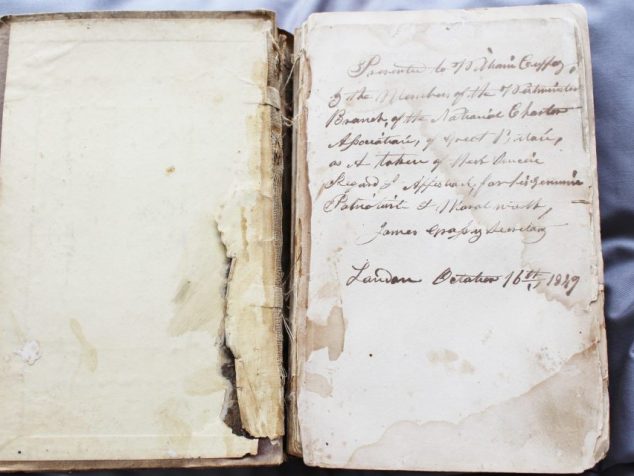 Presented to William Cuffay,
By the Members of the Westminster
Branch, of the National Charter
Association, of Great Britain,
as A token of their Sincere
Regard & Affection, for his genuine
Patriotism & Moral worth,
James Grassby Secretary
London October 16th 1849